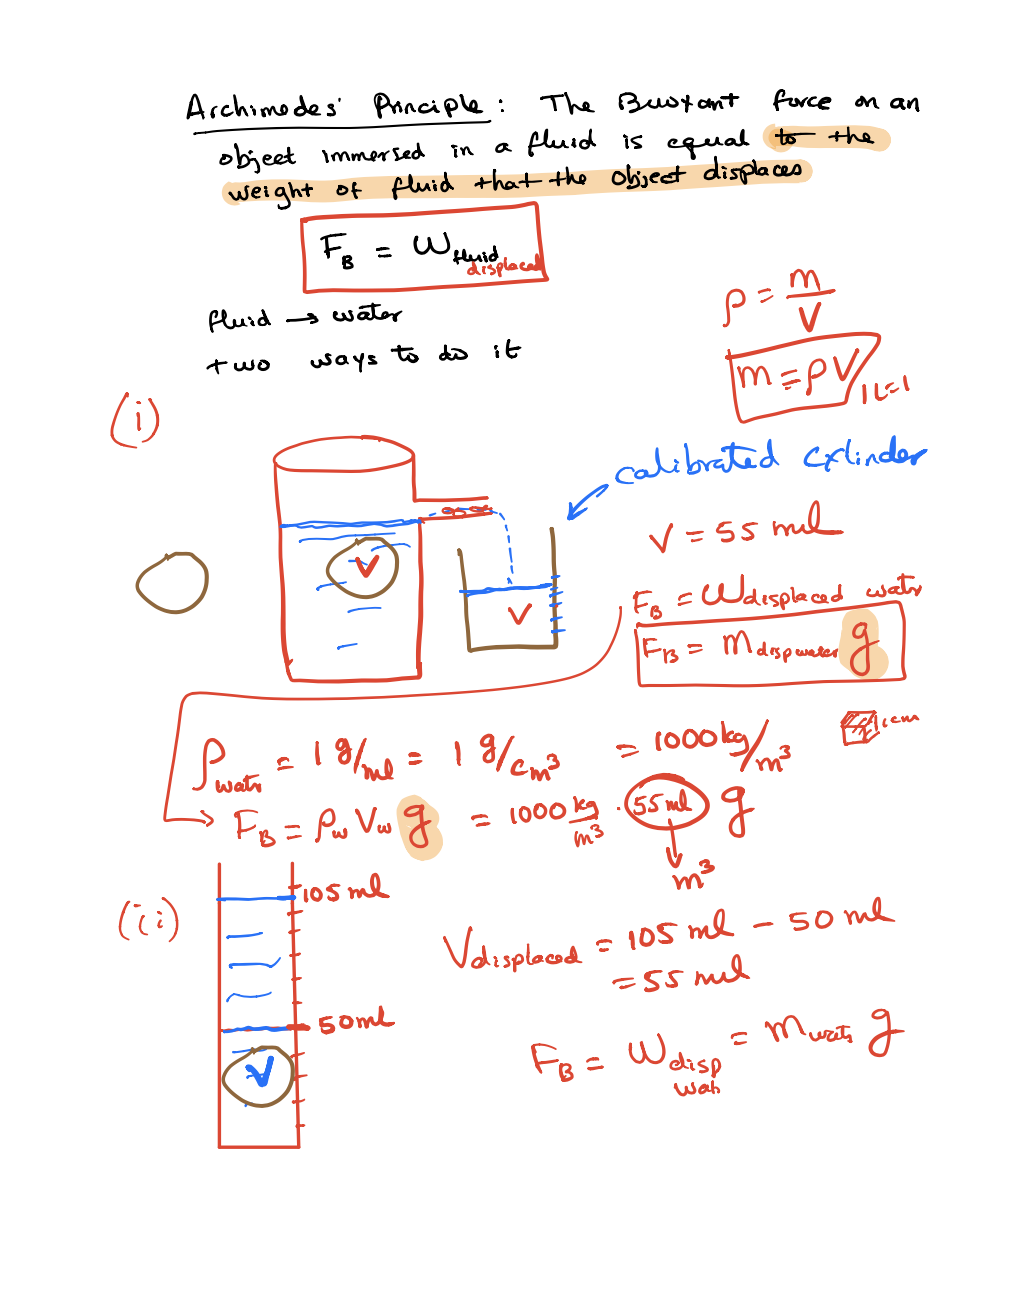 Archimedes' Principle : The Buoyant force on an
object immersed in a fluid is equal to the
weight of fluid that the object displaces
F_B = W_fluid displaced
fluid → water
two ways to do it
ρ = m/V
m = ρV
1L=1
(i)
calibrated cylinder
V = 55 ml
V
V
F_B = W_displaced water
F_B = m_disp water g
1cm
ρ_water = 1 g/ml = 1 g/cm³ = 1000 kg/m³
F_B = ρ_w V_w g = 1000 kg/m³ · 55 ml g
m³
(ii)
105 ml
50 ml
V
V_displaced = 105 ml - 50 ml
= 55 ml
F_B = W_disp wat = m_water g